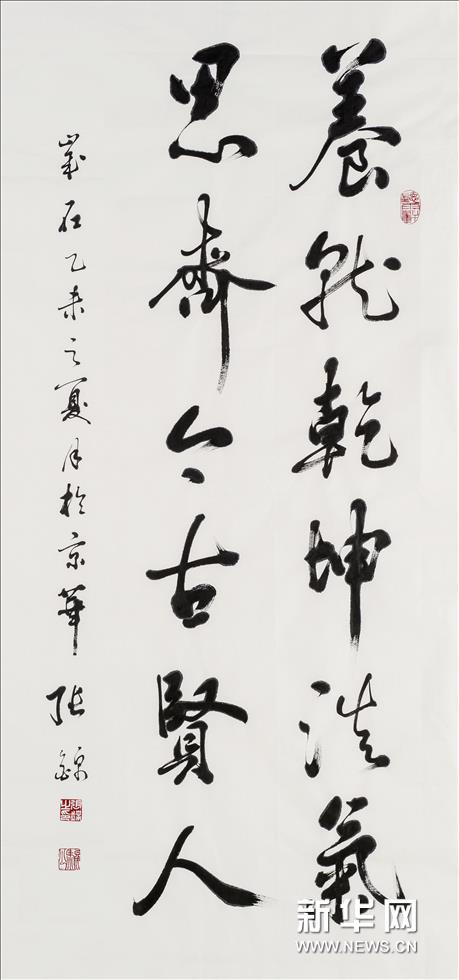 養就乾坤浩氣
思齊今古賢人
歲在乙未之夏月於京華 張錦
新华网
WWW.NEWS.CN